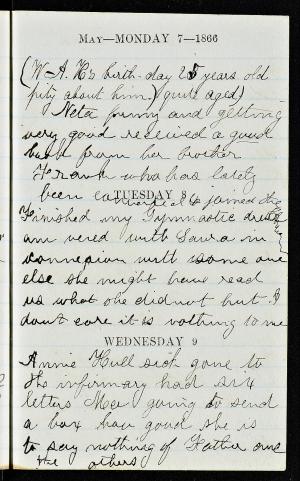 MAY—MONDAY 7—1866
(W. A. H's birth-day 25 years old
pity about him.) (quite aged)
Neta funny and getting
very good received a good
from her brother
Frank who has lately
been converted & joined the
TUESDAY 8
Finished my Gymnastic dress
am vexed with Laura in
connexion with some one
else she might have read
us what she did not but I
dont care it is nothing to me
WEDNESDAY 9
Annie Hull sick gone to
the infirmary had six
letters Mee going to send
a box how good she is
to say nothing of Father and
the others